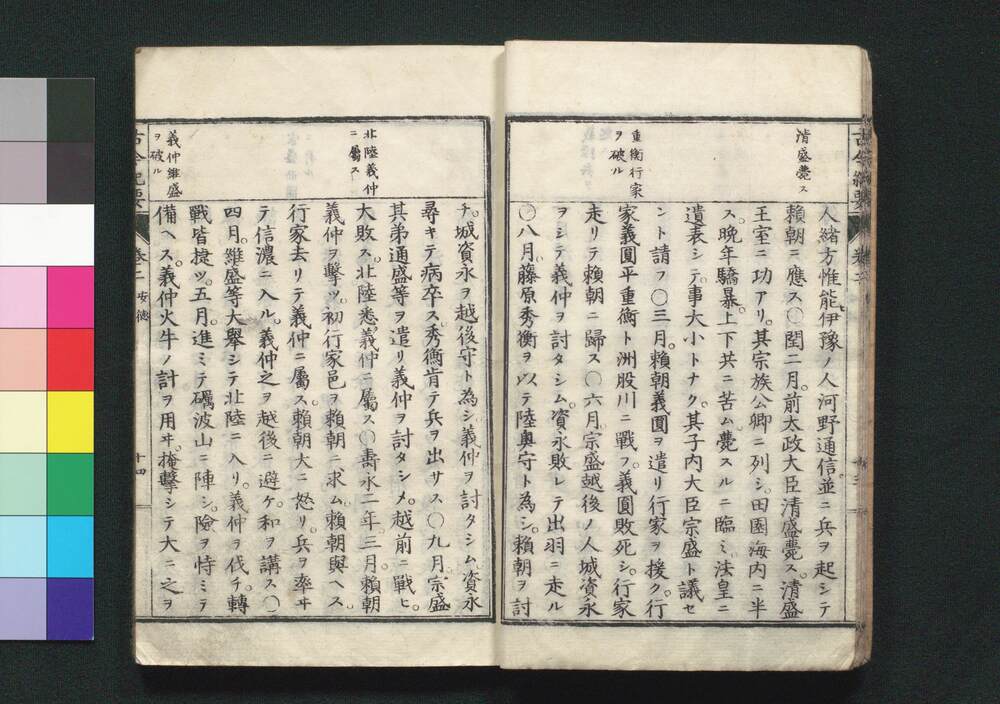 清盛薨ス
重衡行家
ヲ破ル
人緒方惟能伊豫ノ人河野通信並ニ兵ヲ起シテ
頼朝ニ應ス〇閏二月。前太政大臣清盛薨ス。清盛
王室ニ功アリ。其宗族公卿ニ列シ。田園海内ニ半
ス。晩年驕暴。上下共ニ苦ム。薨スルニ臨ミ。法皇ニ
遺表シテ。事大小トナク。其子内大臣宗盛ト議セ
ント請フ〇三月。頼朝義圓ヲ遣リ行家ヲ援ク。行
家義圓平重衡ト洲股川ニ戰フ。義圓敗死シ。行家
走リテ頼朝ニ歸ス〇六月。宗盛越後ノ人城資永
ヲシテ義仲ヲ討タシム。資永敗レテ出羽ニ走ル
〇八月。藤原秀衡ヲ以テ陸奥守ト為シ。頼朝ヲ討
北陸義仲
ニ屬ス
義仲維盛
ヲ破ル
チ。城資永ヲ越後守ト為シ義仲ヲ討タシム。資永
尋キテ病卒ス。秀衡肯テ兵ヲ出サス〇九月宗盛
其弟通盛等ヲ遣リ義仲ヲ討タシメ。越前ニ戰ヒ。
大敗ス。北陸悉義仲ニ屬ス〇壽永二年。三月。頼朝
義仲ヲ擊ツ。初行家邑ヲ頼朝ニ求ム。頼朝與ヘス
行家去リテ義仲ニ屬ス。頼朝大ニ怒リ。兵ヲ率ヰ
テ信濃ニ入ル。義仲之ヲ越後ニ避ケ。和ヲ講ス〇
四月。維盛等大舉シテ北陸ニ入リ。義仲ヲ伐チ。轉
戰皆捷ツ。五月。進ミテ礪波山ニ陣シ。險ヲ恃ミテ
備ヘス。義仲火牛ノ計ヲ用ヰ。掩擊シテ大ニ之ヲ
古今紀要
卷二
安徳
十四